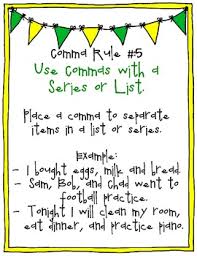 Comma Rule #5
Use Commas with a
Series or List.
Place a comma to separate
items in a list or series.
Example:
- I bought eggs, milk and bread.
- Sam, Bob, and Chad went to
football practice.
- Tonight I will clean my room,
eat dinner, and practice piano.